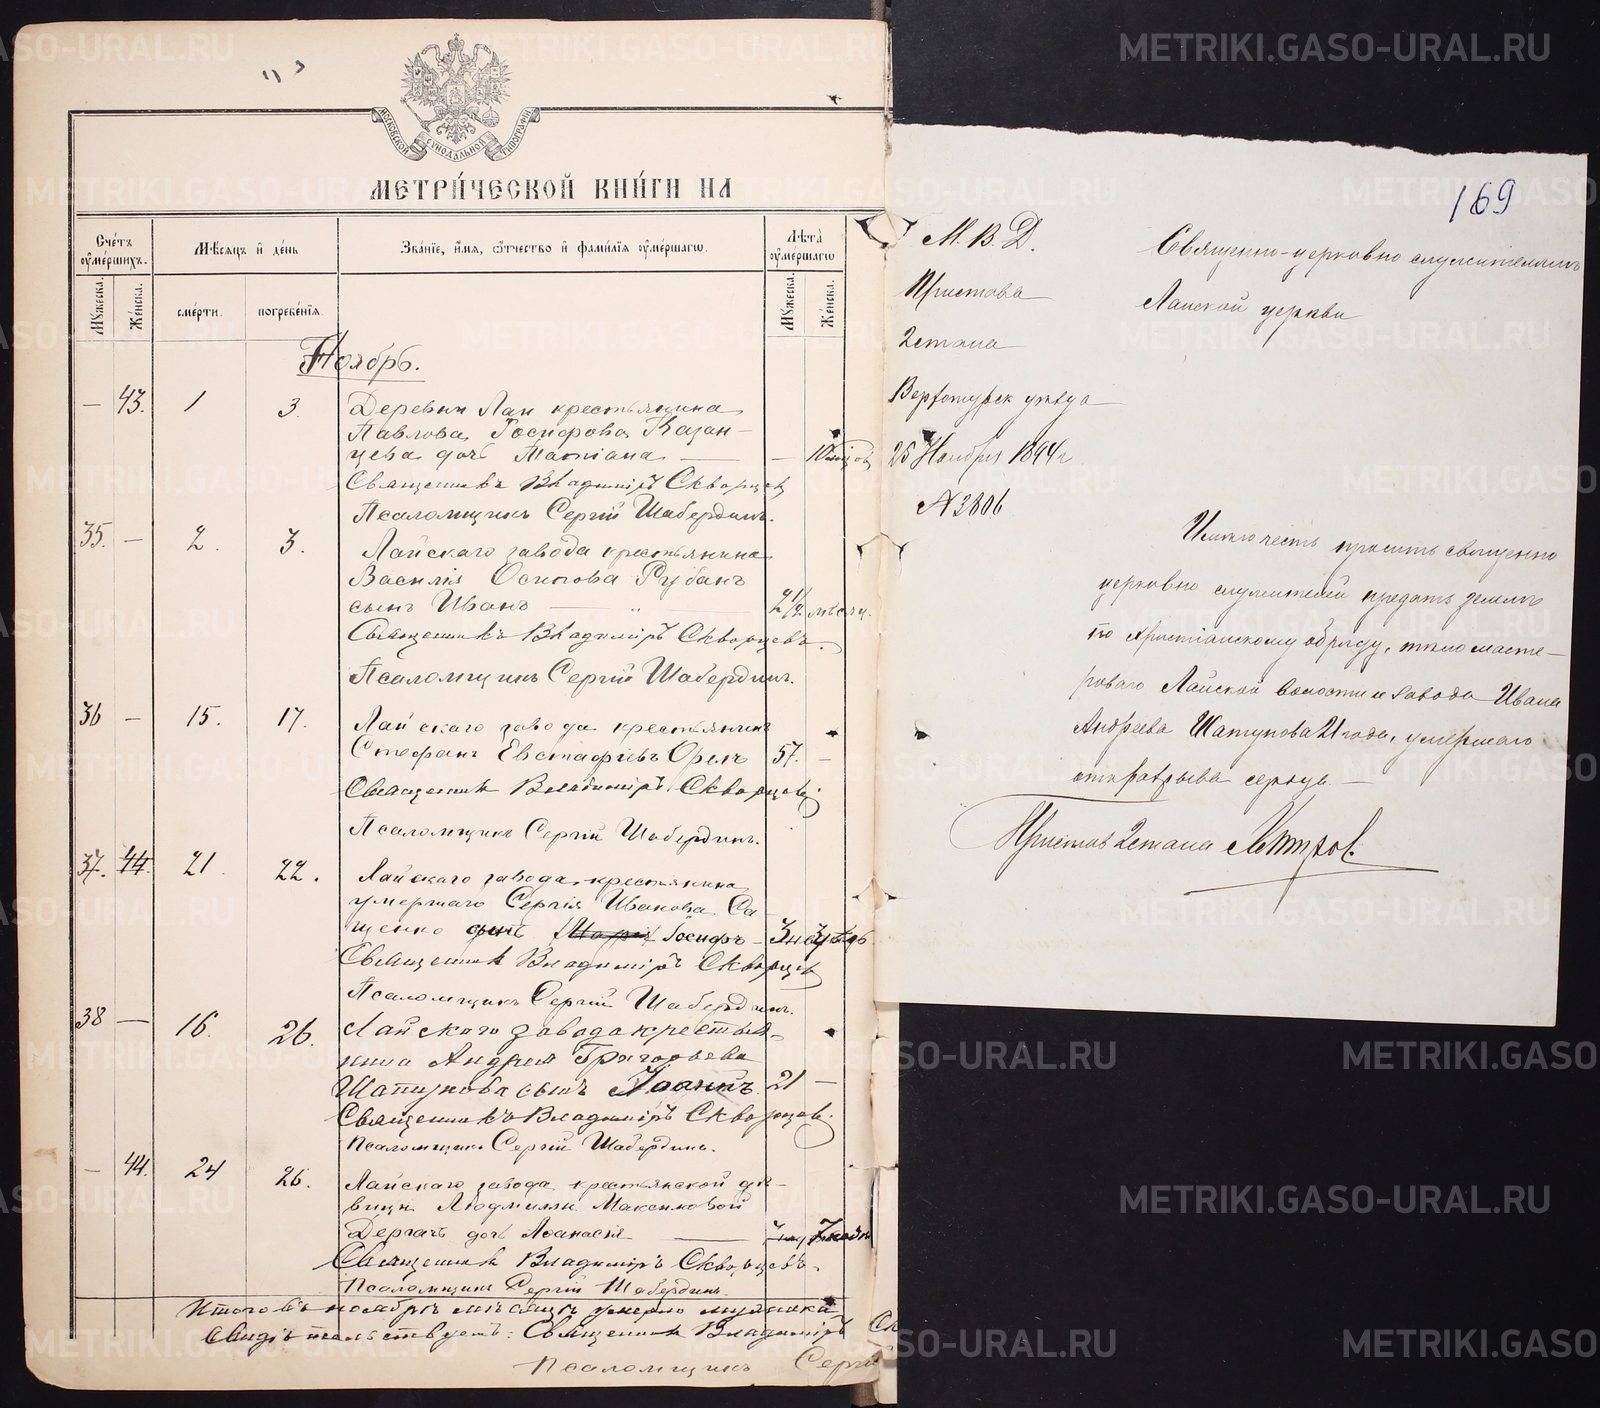 МЕТРИ́ЧЕСКОЙ КНИ́ГИ НА
МОСКОВСКОЙ СѴНОДАЛЬНОЙ ТИПОГРАФІИ
Сче́тъ ᲂу҆ме́ршихъ.
Мꙋ́жеска.
Же́нска.
Мѣ́сяцъ и҆ де́нь
сме́рти.
погребе́нїѧ.
Зва́нїе, и҆́мѧ, ѻ҆́тчество и҆ фами́лїѧ ᲂу҆ме́ршагѡ.
Лѣ́та ᲂу҆ме́ршагѡ
Мꙋ́жеска.
Же́нска.
Ноябрь.
— 43. 1 3. Деревни Лаи крестьянина
Павлова Іосифова Казан-
цева дочь Татіана — —
Священникъ Владиміръ Скворцовъ
Псаломщикъ Сергій Шабердинъ.
35. — 2. 3. Лайскаго завода крестьянина
Василія Осипова Рубанъ
сынъ Иванъ — 2 1/2 мѣсяц.
Священникъ Владиміръ Скворцевъ.
Псаломщикъ Сергій Шабердинъ.
36 — 15. 17. Лайскаго завода крестьянинъ
Стефанъ Евстафіевъ Орелъ 57. —
Священникъ Владиміръ Скворцовъ
Псаломщикъ Сергій Шабердинъ.
37. 44. 21 22. Лайскаго завода крестьянина
умершаго Сергія Иванова Са
щенко сынъ Іосифъ —
Священникъ Владиміръ Скворцов
Псаломщикъ Сергій Шабердинъ.
38 — 16. 26. Лайскаго завода крестья-
нина Андрея Григорьева
Шатунова сынъ Іоаннъ 21 —
Священникъ Владиміръ Скворцов.
Псаломщикъ Сергій Шабердинъ.
— 44. 24 26. Лайскаго завода крестьянской дѣ-
вицы Людмилы Максимовой
Дергачъ дочь Аѳанасія —
Священникъ Владиміръ Скворцевъ.
Псаломщикъ Сергій Шабердинъ.
Итого въ ноябрѣ мѣсяцѣ умерло мужска
Свидѣтельствуетъ: Священникъ Владиміръ Ск
Псаломщикъ Сергій
169
М. В. Д.
Пристава
2 стана
Верхотурск уѣзда
25 Ноября 1894 г.
№ 2806
Священно-церковно служителямъ
Лайской церкви
Имѣю честь просить священно
церковно служителей предать землѣ
по христіанскому обряду, тѣло масте-
роваго Лайской волости и завода Ивана
Андреева Шатунова 21 года, умершаго
отъ разрыва сердца. —
Пристав 2 стана
METRIKI.GASO-URAL.RU